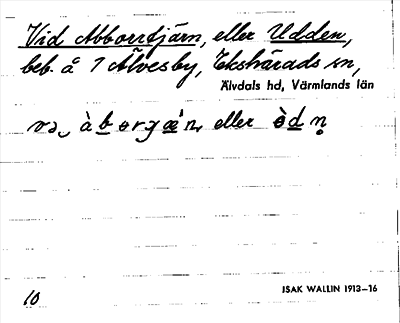 Vid Abborrtjärn, eller Udden,
beb. å 7 Älvesby, Ekshärads sn,
Älvdals hd, Värmlands län
eller
ISAK WALLIN 1913–16
10